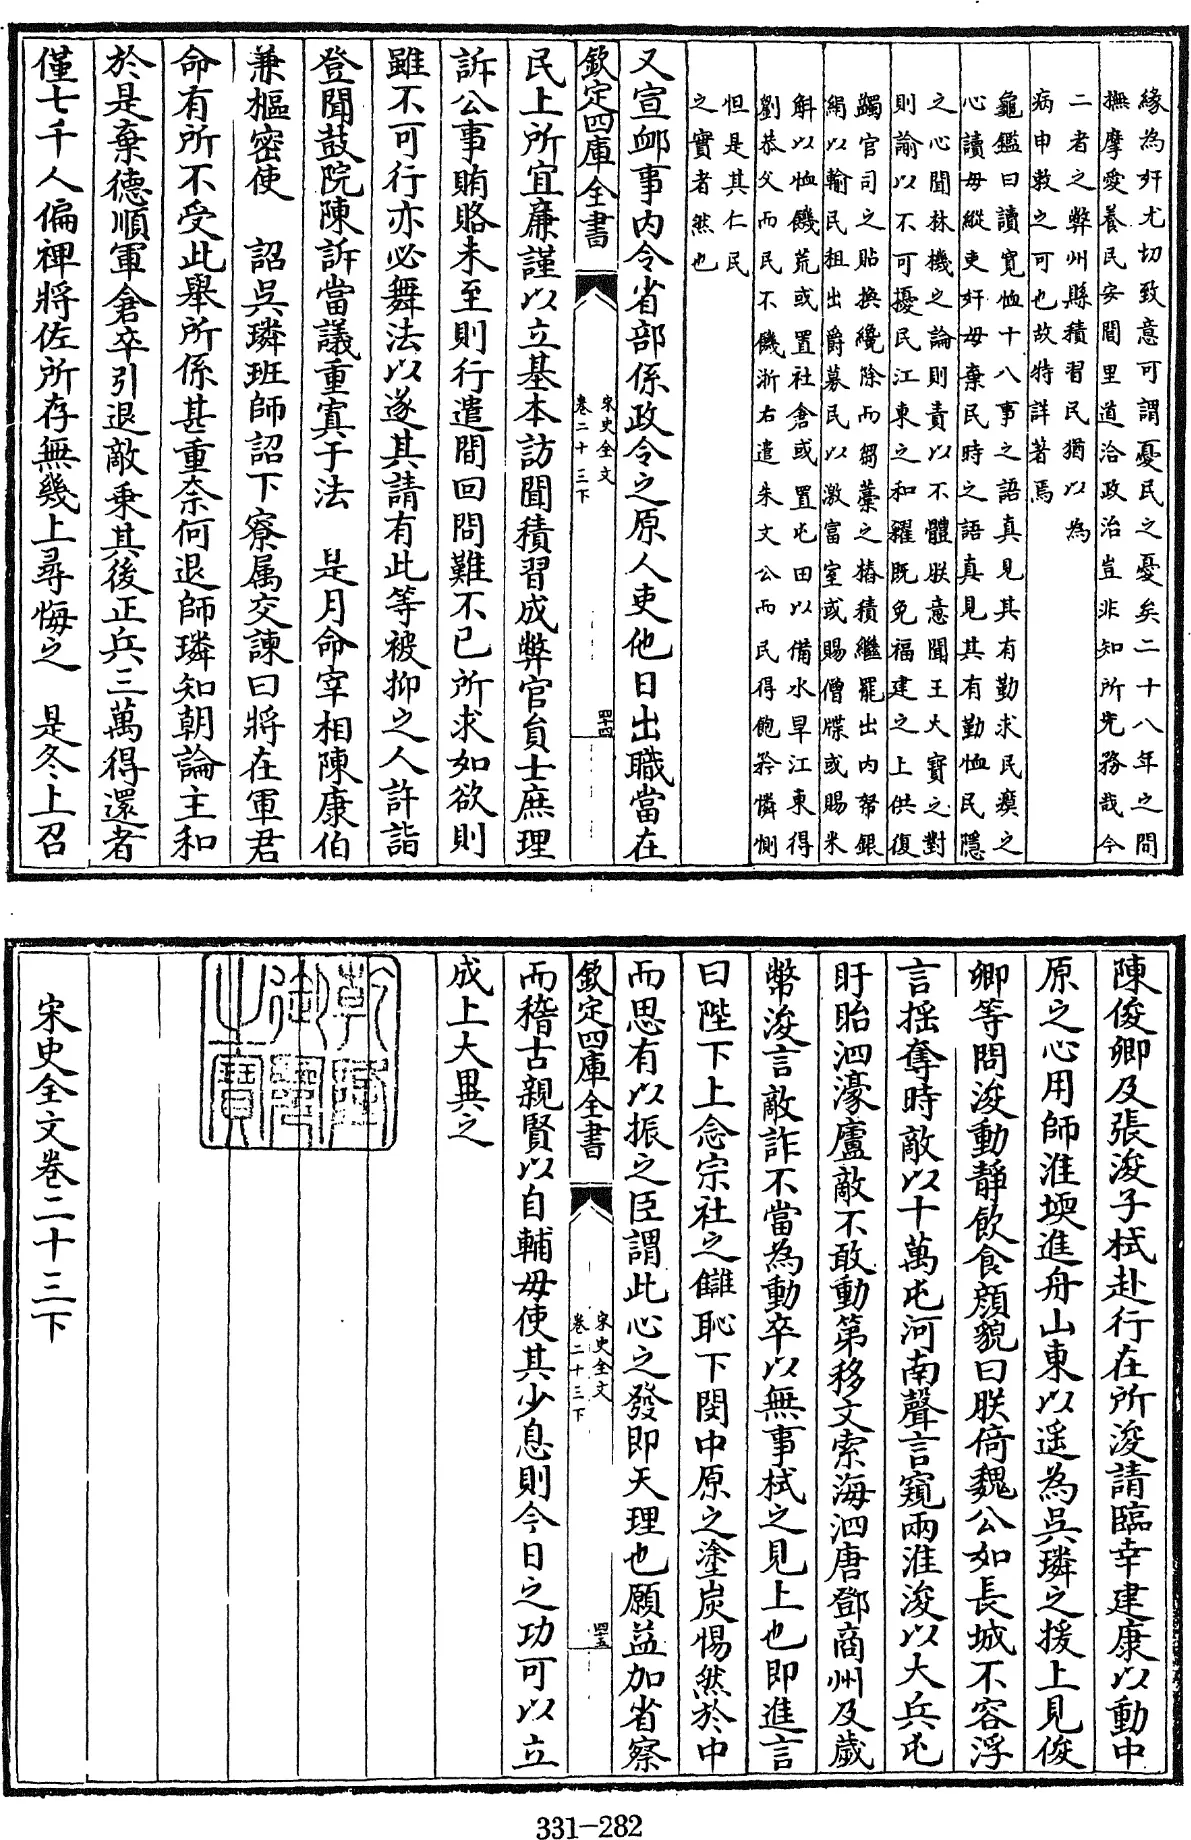 緣為奸尤切致意可謂憂民之憂矣二十八年之間
撫摩愛養民安閭里道洽政治豈非知所先務哉今
二者之弊州縣積習民猶以為
病申敕之可也故特詳著焉
龜鑑曰讀寬恤十八事之語真見其有勤求民瘼之
心讀毋縱吏奸毋棄民時之語真見其有勤恤民隱
之心聞林機之論則責以不體朕意聞王大寶之對
則諭以不可擾民江東之和糴既免福建之上供復
蠲官司之貼換纔除而芻藁之樁積繼罷出内帑銀
絹以輸民租出爵募民以激富室或賜僧牒或賜米
斛以恤饑荒或置社倉或置屯田以備水旱江東得
劉恭父而民不饑浙右遣朱文公而民得飽矜憐惻
怛是其仁民
之實者然也
又宣䘏事内令省部係政令之原人吏他日出職當在
欽定四庫全書
宋史全文
卷二十三下
四十四
民上所宜廉謹以立基本訪聞積習成弊官員士庶理
訴公事賄賂未至則行遣間回問難不已所求如欲則
雖不可行亦必舞法以遂其請有此等被抑之人許詣
登聞鼓院陳訴當議重寘于法 是月命宰相陳康伯
兼樞密使 詔吳璘班師詔下寮属交諫曰將在軍君
命有所不受此舉所係甚重奈何退師璘知朝論主和
於是棄德順軍倉卒引退敵乘其後正兵三萬得還者
僅七千人偏裨將佐所存無幾上尋悔之 是冬上召
陳俊卿及張浚子栻赴行在所浚請臨幸建康以動中
原之心用師淮堧進舟山東以遥為吳璘之援上見俊
卿等問浚動靜飲食顔貌曰朕倚魏公如長城不容浮
言揺奪時敵以十萬屯河南聲言窺兩淮浚以大兵屯
盱眙泗濠廬敵不敢動第移文索海泗唐鄧商州及歲
幣浚言敵詐不當為動卒以無事栻之見上也即進言
曰陛下上念宗社之讎恥下閔中原之塗炭惕然於中
而思有以振之臣謂此心之發即天理也願益加省察
欽定四庫全書
宋史全文
卷二十三下
四十五
而稽古親賢以自輔毋使其少息則今日之功可以立
成上大異之
乾隆御覽之寶
宋史全文卷二十三下
331-282